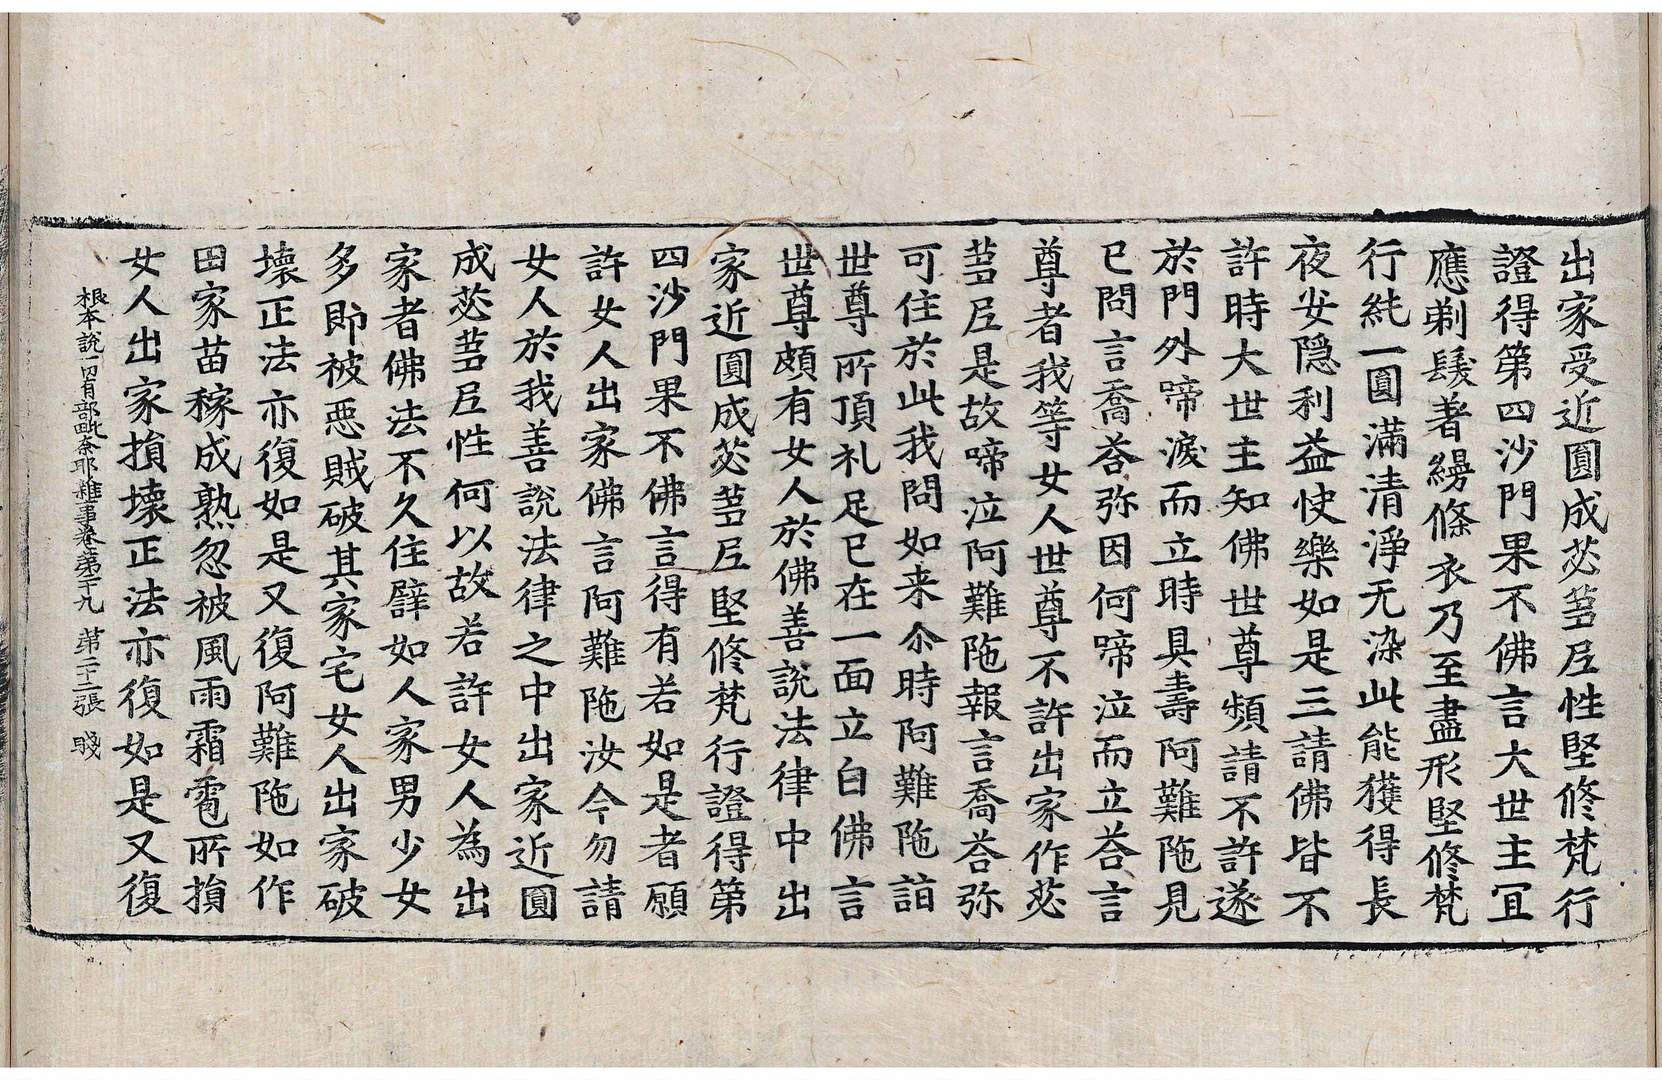 出家受近圓成苾蒭尼性堅修梵行
證得第四沙門果不佛言大世主冝
應剃髮著縵條衣乃至盡形堅修梵
行純一圓滿清淨无染此能獲得長
夜安隱利益快樂如是三請佛皆不
許時大世主知佛世尊頻請不許遂
於門外啼淚而立時具壽阿難陁見
已問言喬荅弥因何啼泣而立荅言
尊者我等女人世尊不許出家作苾
蒭尼是故啼泣阿難陁報言喬荅弥
可住於此我問如来尒時阿難陁詣
世尊所頂礼足已在一面立白佛言
世尊頗有女人於佛善說法律中出
家近圓成苾蒭尼堅修梵行證得第
四沙門果不佛言得有若如是者願
許女人出家佛言阿難陁汝今勿請
女人於我善說法律之中出家近圓
成苾蒭尼性何以故若許女人為出
家者佛法不久住譬如人家男少女
多即被惡賊破其家宅女人出家破
壞正法亦復如是又復阿難陁如作
田家苗稼成熟忽被風雨霜雹所損
女人出家損壞正法亦復如是又復
根本說一切有部毗奈耶雜事卷第二十九 第二十二張 賤